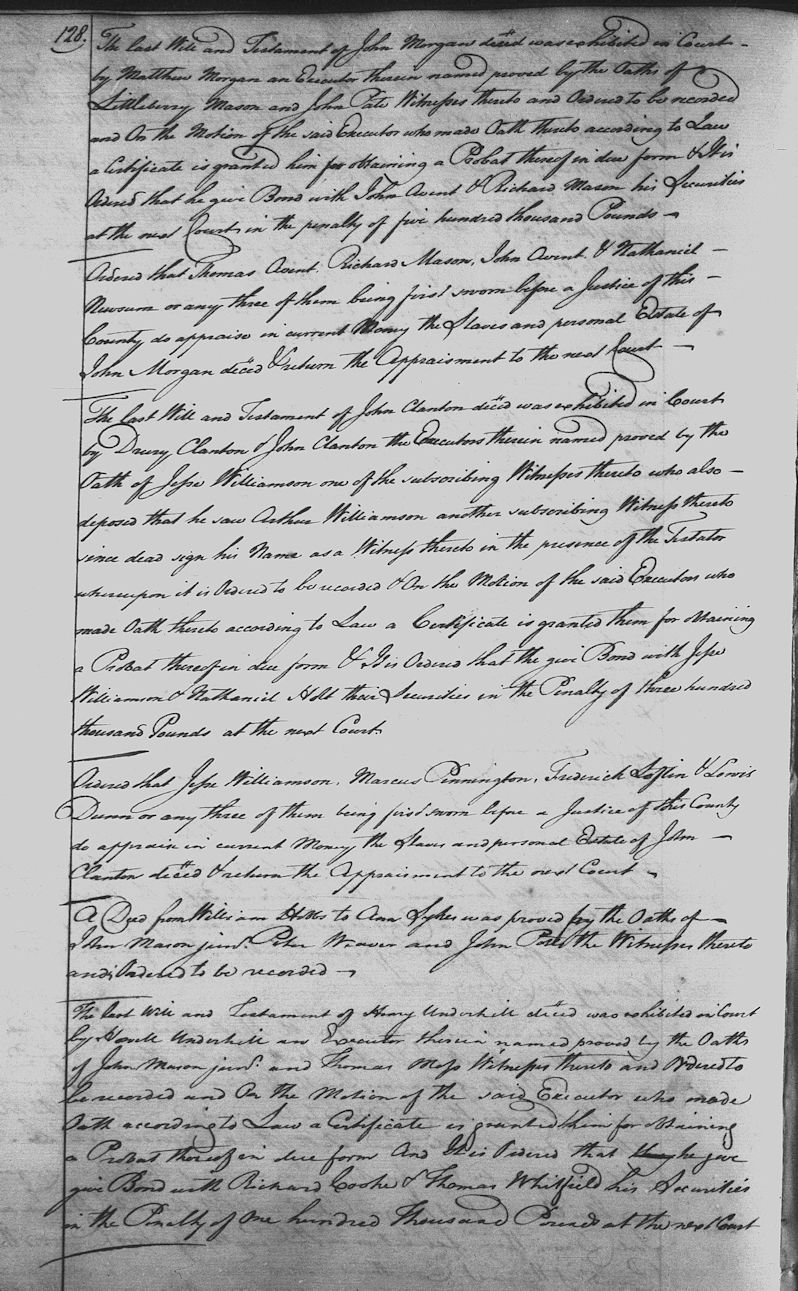 128.
The last Will and Testament of John Morgan dec'd was exhibited in Court
by Matthew Morgan an Executor therein named proved by the Oaths of
Littleberry Mason and John Pate Witnesses thereto and Ordered to be recorded
and On the Motion of the said Executor who made Oath thereto according to Law
a Certificate is granted him for obtaining a Probat thereof in due form & It is
Ordered that he give Bond with John Avent & Richard Mason his Securities
at the next Court in the penalty of five hundred thousand Pounds
Ordered that Thomas Avent, Richard Mason, John Avent & Nathaniel
Newsum or any three of them being first sworn before a Justice of this
County do appraise in current Money the Slaves and personal Estate of
John Morgan dec'd & return the Appraisment to the next Court
The last Will and Testament of John Clanton dec'd was exhibited in Court
by Drury Clanton & John Clanton the Executors therein named proved by the
Oath of Jesse Williamson one of the subscribing Witnesses thereto who also
deposed that he saw Arthur Williamson another subscribing Witness thereto
since dead sign his Name as a Witness thereto in the presence of the Testator
whereupon it is Ordered to be recorded & On the Motion of the said Executors who
made Oath thereto according to Law a Certificate is granted them for obtaining
a Probat thereof in due form & It is Ordered that the give Bond with Jesse
Williamson & Nathaniel Holt their Securities in the Penalty of three hundred
thousand Pounds at the next Court
Ordered that Jesse Williamson, Marcus Pennington, Frederick Loftin & Lewis
Dunn or any three of them being first sworn before a Justice of this County
do appraise in current Money the Slaves and personal Estate of John
Clanton dec'd & return the Appraisment to the next Court
A Deed from William to Ann Sykes was proved by the Oaths of
John Mason junr. Peter Weaver and John the Witnesses thereto
and Ordered to be recorded
The last Will and Testament of Henry Underhill dec'd was exhibited in Court
by Howell Underhill an Executor therein named proved by the Oaths
of John Mason junr. and Thomas Moss Witnesses thereto and Ordered to
be recorded and On the Motion of the said Executor who made
Oath according to Law a Certificate is granted him for obtaining
a Probat thereof in due form And It is Ordered that he give
give Bond with Richard Cooke & Thomas Whitfield his Securities
in the Penalty of One hundred Thousand Pounds at the next Court